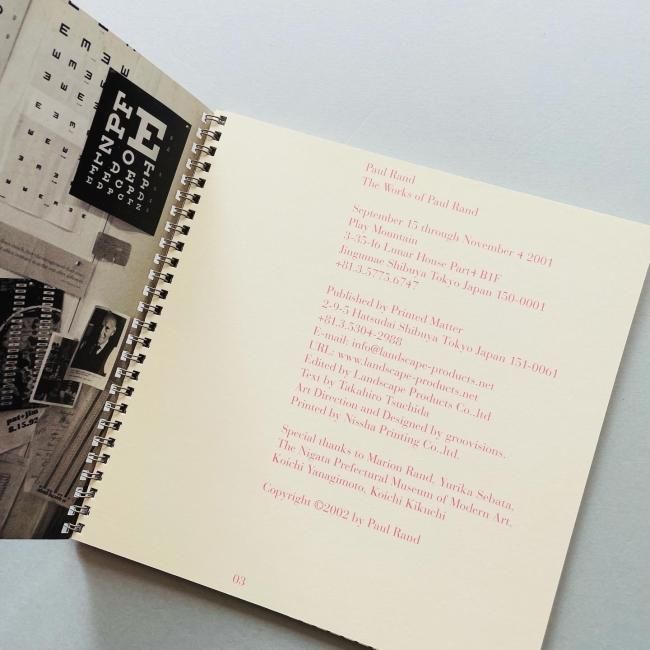 E
PF
NPO
pat+jim
8.15.92
Paul Rand
The Works of Paul Rand
September 15 through November 4 2001
Play Mountain
3-35-16 Lunar House Part4 B1F
Jingumae Shibuya Tokyo Japan 150-0001
+81.3.5775.6747
Published by Printed Matter
2-9-5 Hatsudai Shibuya Tokyo Japan 151-0061
+81.3.5304-2988
E-mail: info@landscape-products.net
URL: www.landscape-products.net
Edited by Landscape Products Co.,ltd
Text by Takahiro Tsuchida
Art Direction and Designed by groovisions.
Printed by Nissha Printing Co.,ltd.
Special thanks to Marion Rand, Yurika Sebata,
The Nigata Prefectural Museum of Modern Art,
Koichi Yanagimoto, Koichi Kikuchi
Copyright ©2002 by Paul Rand
03